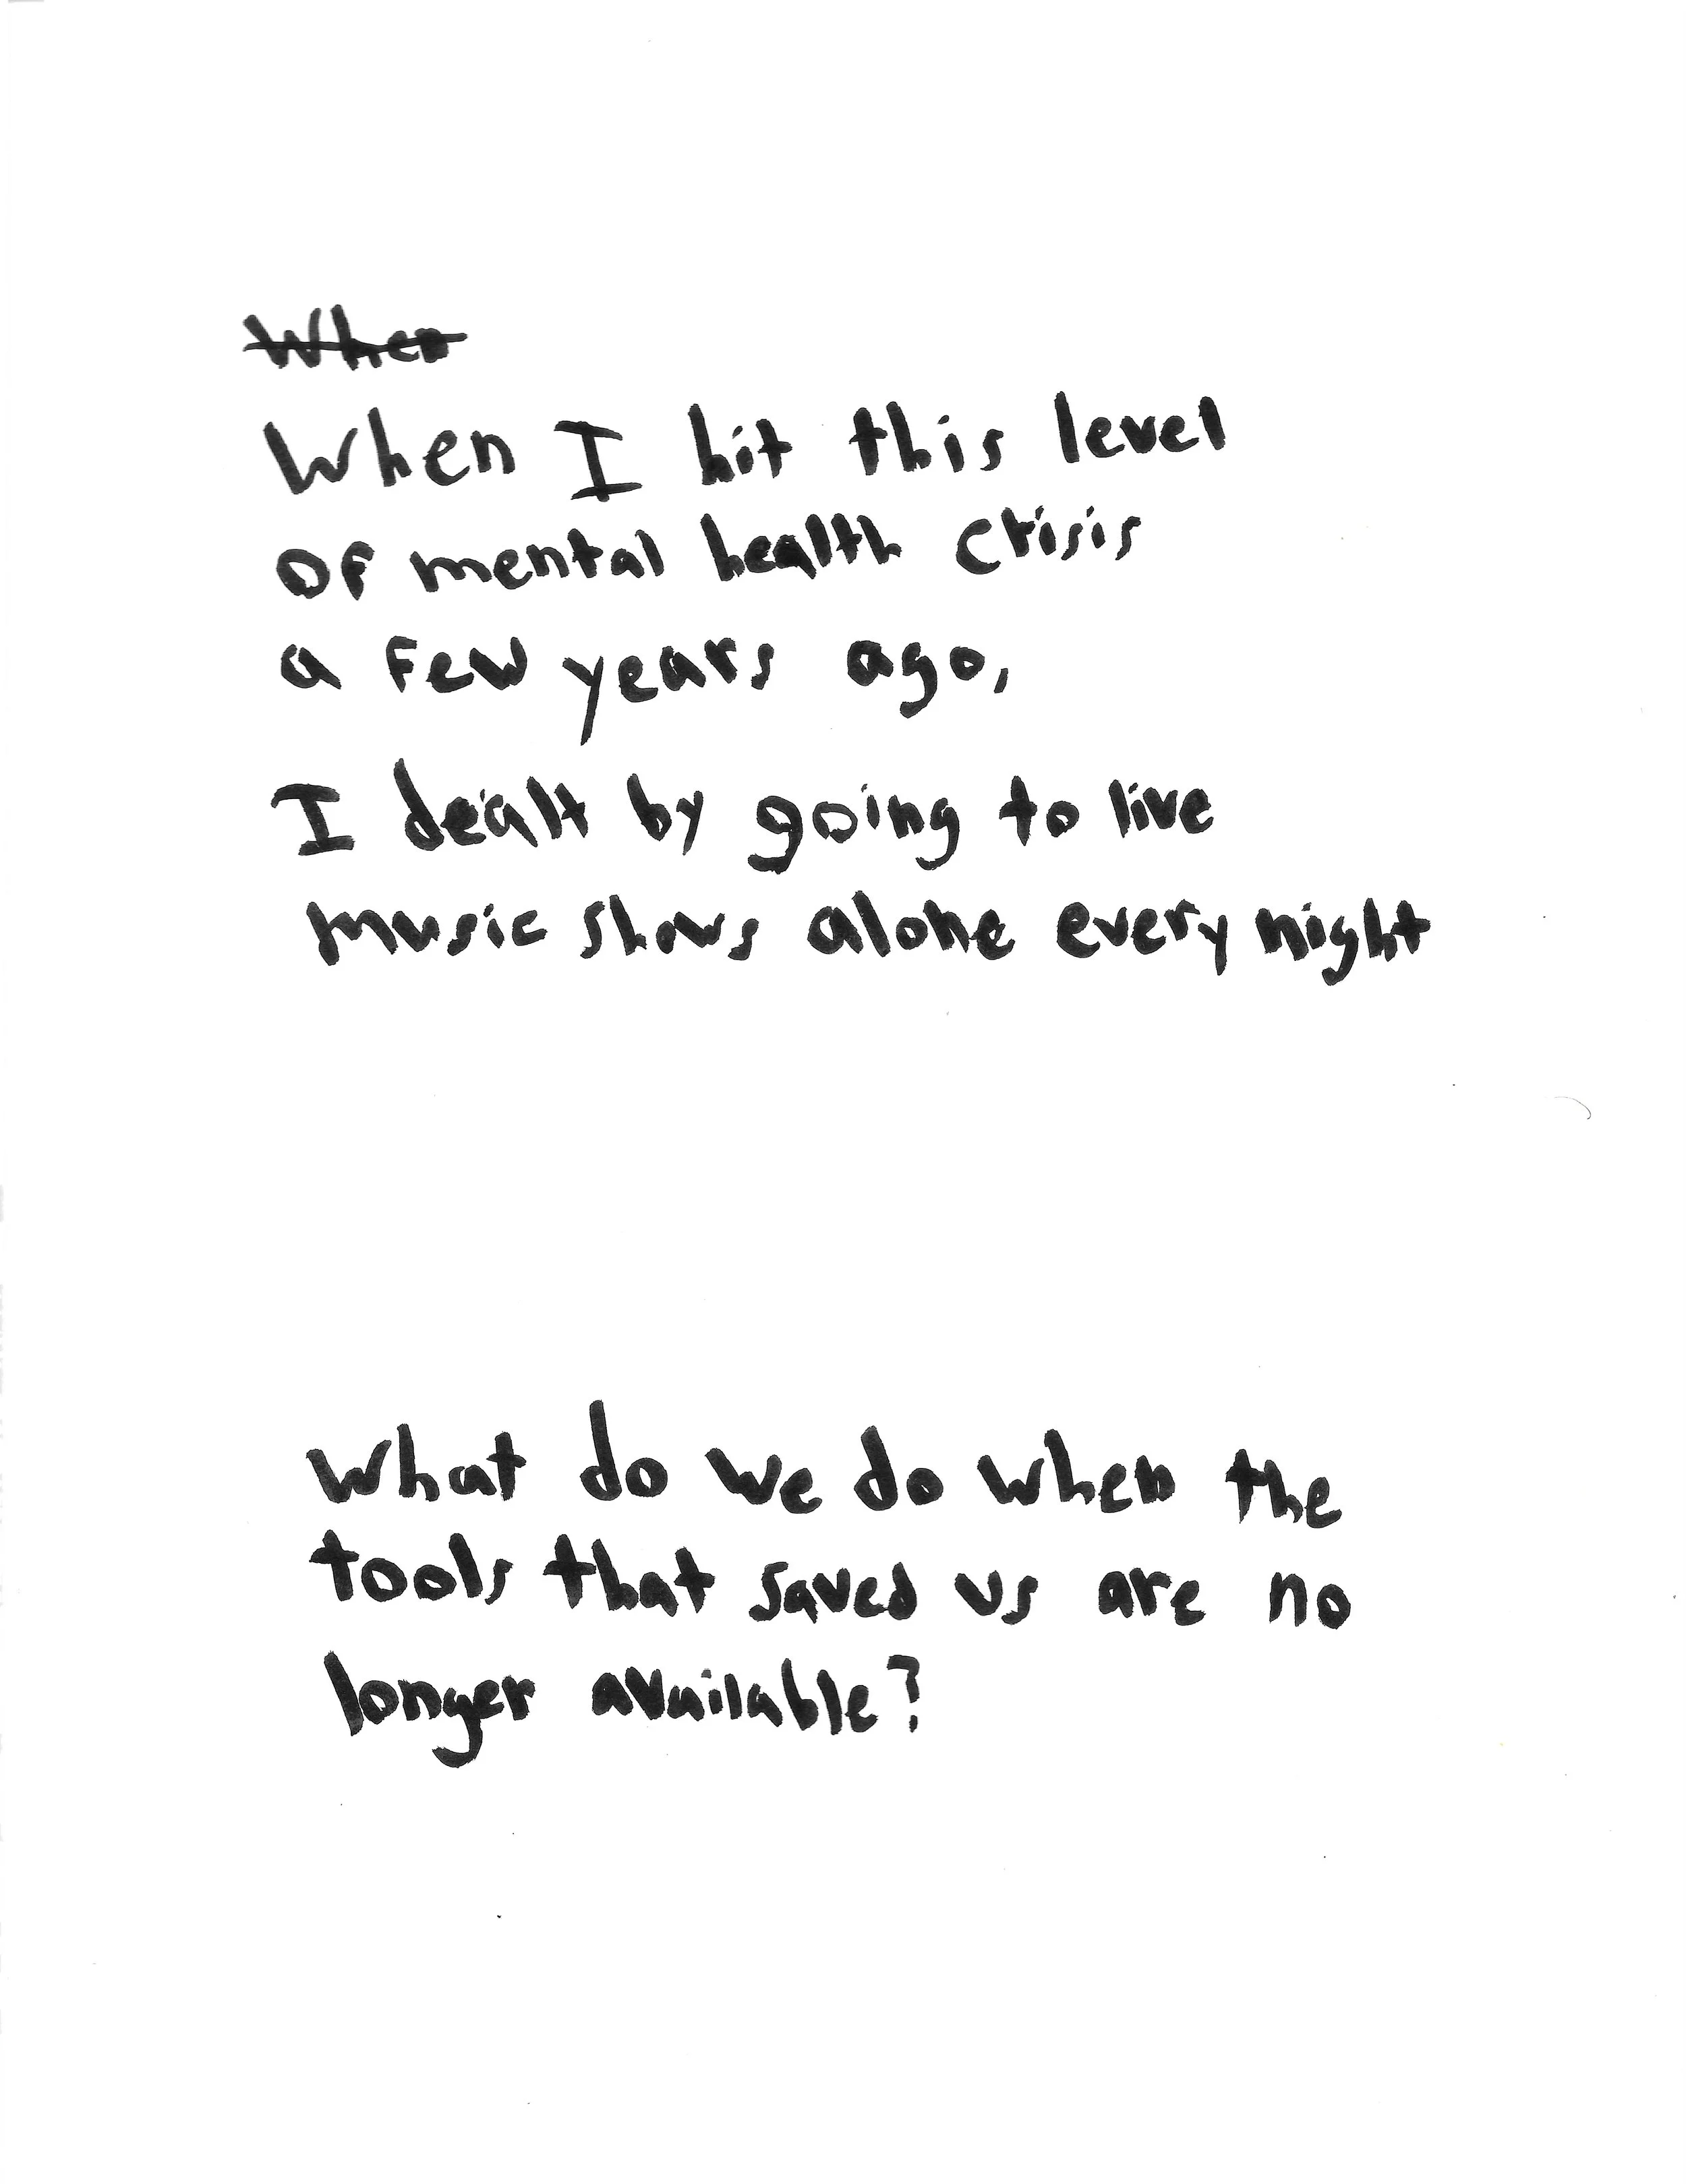 When
When I hit this level
of mental health crisis
a few years ago,
I dealt by going to live
music shows alone every night
What do we do when the
tools that saved us are no
longer available?